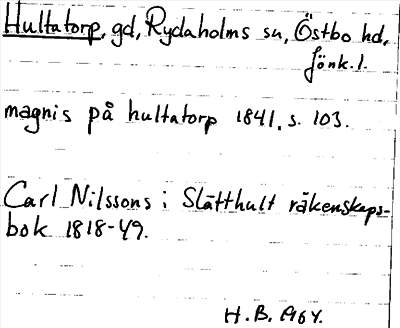 Hultatorp, gd, Rydaholms sn, Östbo hd,
Jönk. l.
magnis på hultatorp 1841, s. 103.
Carl Nilssons i Slätthult räkenskaps-
bok 1818-49.
H.B. A64.